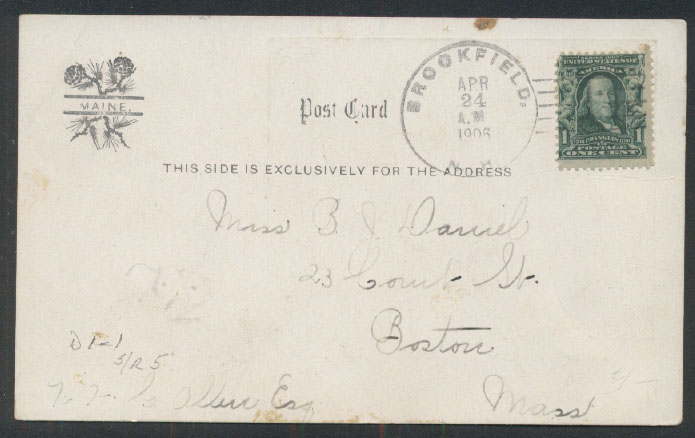 MAINE.
Post Card
BROOKFIELD,
APR
24
A.M
1906
N. H.
UNITED STATES OF
AMERICA
1 FRANKLIN 1
POSTAGE
ONE CENT
THIS SIDE IS EXCLUSIVELY FOR THE ADDRESS
Miss B. J Daniel
23 Court St.
Boston
Mass
D 1-1
S/R 5
Allen Esq